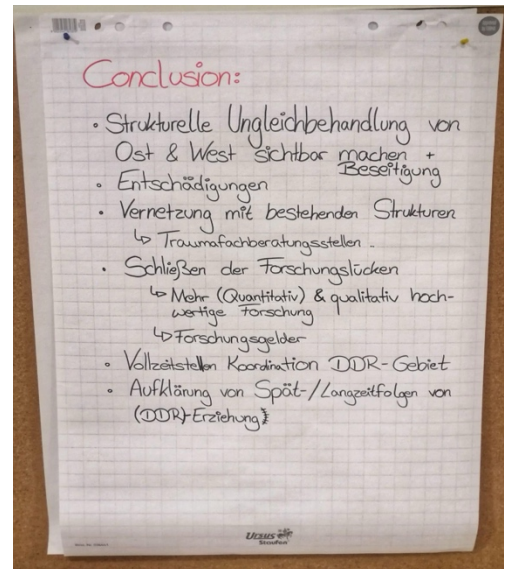 Conclusion:
• Strukturelle Ungleichbehandlung von
Ost & West sichtbar machen +
Beseitigung
• Entschädigungen
• Vernetzung mit bestehenden Strukturen
↳ Traumafachberatungsstellen .
• Schließen der Forschungslücken
↳ Mehr (Quantitativ) & qualitativ hoch-
wertige Forschung
↳ Forschungsgelder
• Vollzeitstellen Koordination DDR-Gebiet
• Aufklärung von Spät-/Langzeitfolgen von
(DDR)-Erziehung
URSUS
Staufen